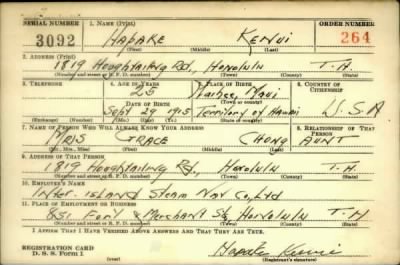 SERIAL NUMBER 1. NAME (Print) ORDER NUMBER
3092 HAPAKE KENUI 264
(First) (Middle) (Last)
2. ADDRESS (Print)
1819 Houghtailing Rd., Honolulu T.H.
(Number and street or R. F. D. number) (Town) (County) (State)
3. TELEPHONE 4. AGE IN YEARS 5. PLACE OF BIRTH 6. COUNTRY OF CITIZENSHIP
25 Waihee, Maui
DATE OF BIRTH (Town or county)
Sept 29 1915 Territory of Hawaii U.S.A
(Exchange) (Number) (Mo.) (Day) (Yr.) (State or country)
7. NAME OF PERSON WHO WILL ALWAYS KNOW YOUR ADDRESS 8. RELATIONSHIP OF THAT PERSON
MRS GRACE CHONG AUNT
(Mr., Mrs., Miss) (First) (Middle) (Last)
9. ADDRESS OF THAT PERSON
1819 Houghtailing Rd., Honolulu T.H.
(Number and street or R. F. D. number) (Town) (County) (State)
10. EMPLOYER'S NAME
Inter-island Steam Nav Co., Ltd
11. PLACE OF EMPLOYMENT OR BUSINESS
Fort & Merchant St., Honolulu T.H
(Number and street or R. F. D. number) (Town) (County) (State)
I AFFIRM THAT I HAVE VERIFIED ABOVE ANSWERS AND THAT THEY ARE TRUE.
REGISTRATION CARD
D. S. S. Form 1 Hapake Kenui
(Registrant's signature)